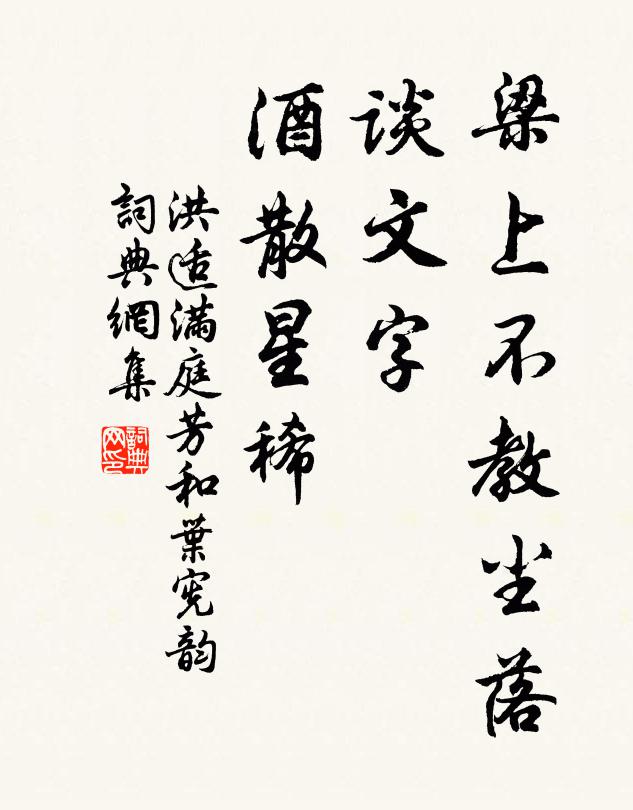 梁上不教尘落
談文字
酒散星稀
洪适滿庭芳和葉宪韵
詞典網集
詞典网印